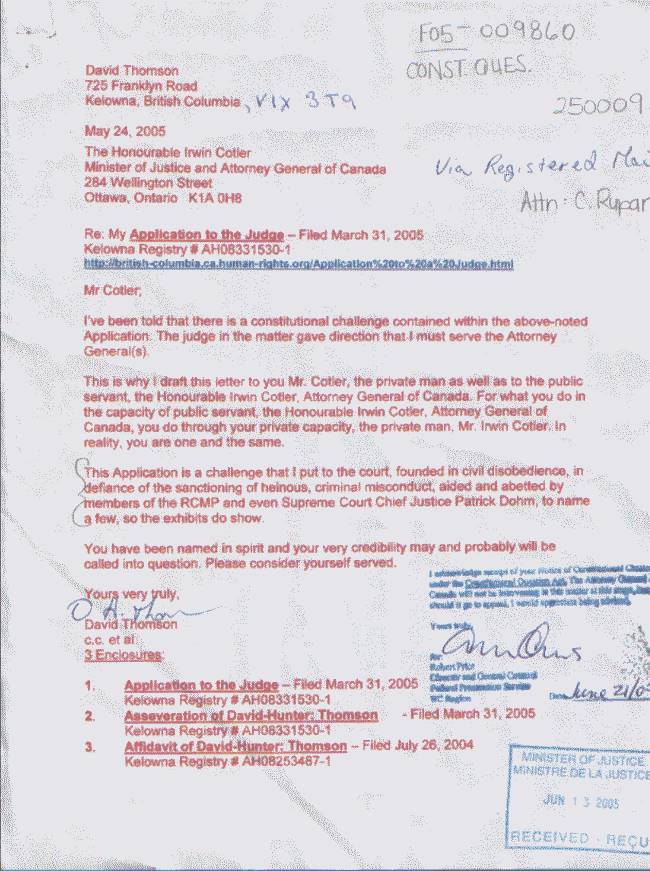 F05-009860
CONST. QUES.
250009
David Thomson
725 Franklyn Road
Kelowna, British Columbia, V1X 3T9
May 24, 2005
The Honourable Irwin Cotler
Minister of Justice and Attorney General of Canada
284 Wellington Street
Ottawa, Ontario K1A 0H8
Via Registered Mai
Attn: C. Rupar
Re: My Application to the Judge – Filed March 31, 2005
Kelowna Registry # AH08331530-1
http://british-columbia.ca.human-rights.org/Application%20to%20a%20Judge.html
Mr Cotler;
I've been told that there is a constitutional challenge contained within the above-noted
Application. The judge in the matter gave direction that I must serve the Attorney
General(s).
This is why I draft this letter to you Mr. Cotler, the private man as well as to the public
servant, the Honourable Irwin Cotler, Attorney General of Canada. For what you do in
the capacity of public servant, the Honourable Irwin Cotler, Attorney General of
Canada, you do through your private capacity, the private man, Mr. Irwin Cotler. In
reality, you are one and the same.
This Application is a challenge that I put to the court, founded in civil disobedience, in
defiance of the sanctioning of heinous, criminal misconduct, aided and abetted by
members of the RCMP and even Supreme Court Chief Justice Patrick Dohm, to name
a few, so the exhibits do show.
You have been named in spirit and your very credibility may and probably will be
called into question. Please consider yourself served.
Yours very truly,
David Thomson
c.c. et al
3 Enclosures:
I acknowledge receipt of your Notice of Constitutional
under the Constitutional Question Act. The Attorney General
Canada will not be intervening in this matter at this stage.
should it go to appeal, I would appreciate being advised.
Yours truly,
for:
Robert Prior
Director and General Counsel
Federal Prosecution Service
BC Region
Date June 21/0
1. Application to the Judge – Filed March 31, 2005
Kelowna Registry # AH08331530-1
2. Asseveration of David-Hunter: Thomson - Filed March 31, 2005
Kelowna Registry # AH08331530-1
3. Affidavit of David-Hunter: Thomson – Filed July 26, 2004
Kelowna Registry # AH08253487-1
MINISTER OF JUSTICE
MINISTRE DE LA JUSTICE
JUN 13 2005
RECEIVED - REÇU